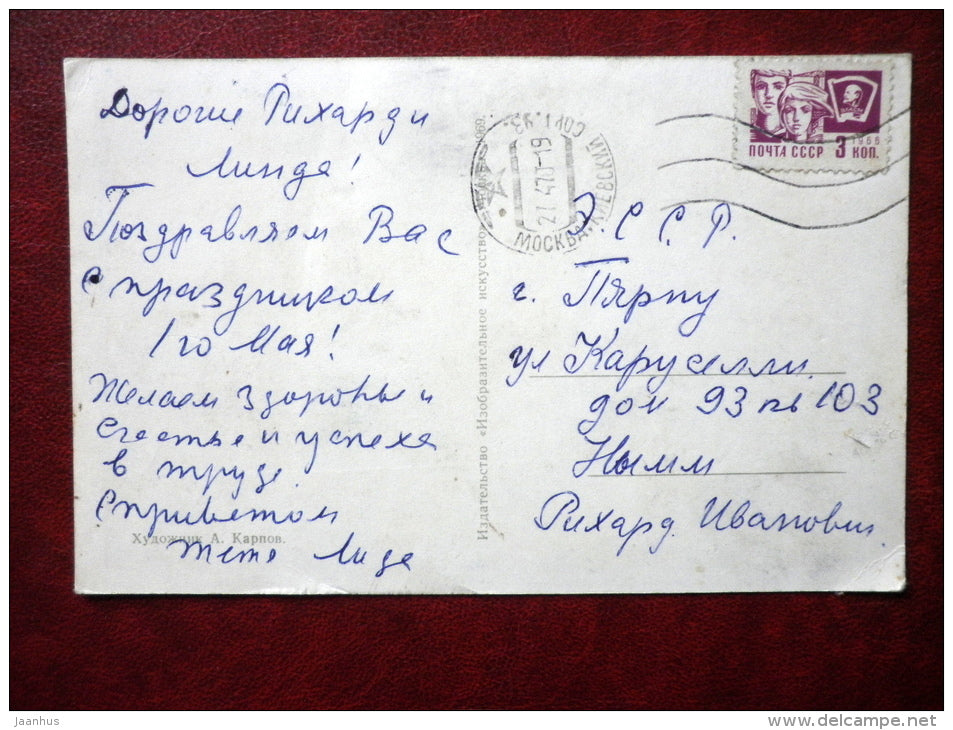 Дорогие Рихард и
Линда!
Поздравляем Вас
с праздником
1го Мая!
Желаем здоровье и
счастье и успеха
в труде.
С приветом
тетя Лида
Художник А. Карпов.
Издательство «Изобразительное искусство»
МОСКВА КИЕВСКИЙ
27 470-19
СОРТ.
1966
ПОЧТА СССР 3 КОП.
Э. С С. Р.
г. Пярну
ул Каруселли
дом 93 кв 103
Нымм
Рихард Иванович
Jaanhus
www.delcampe.net